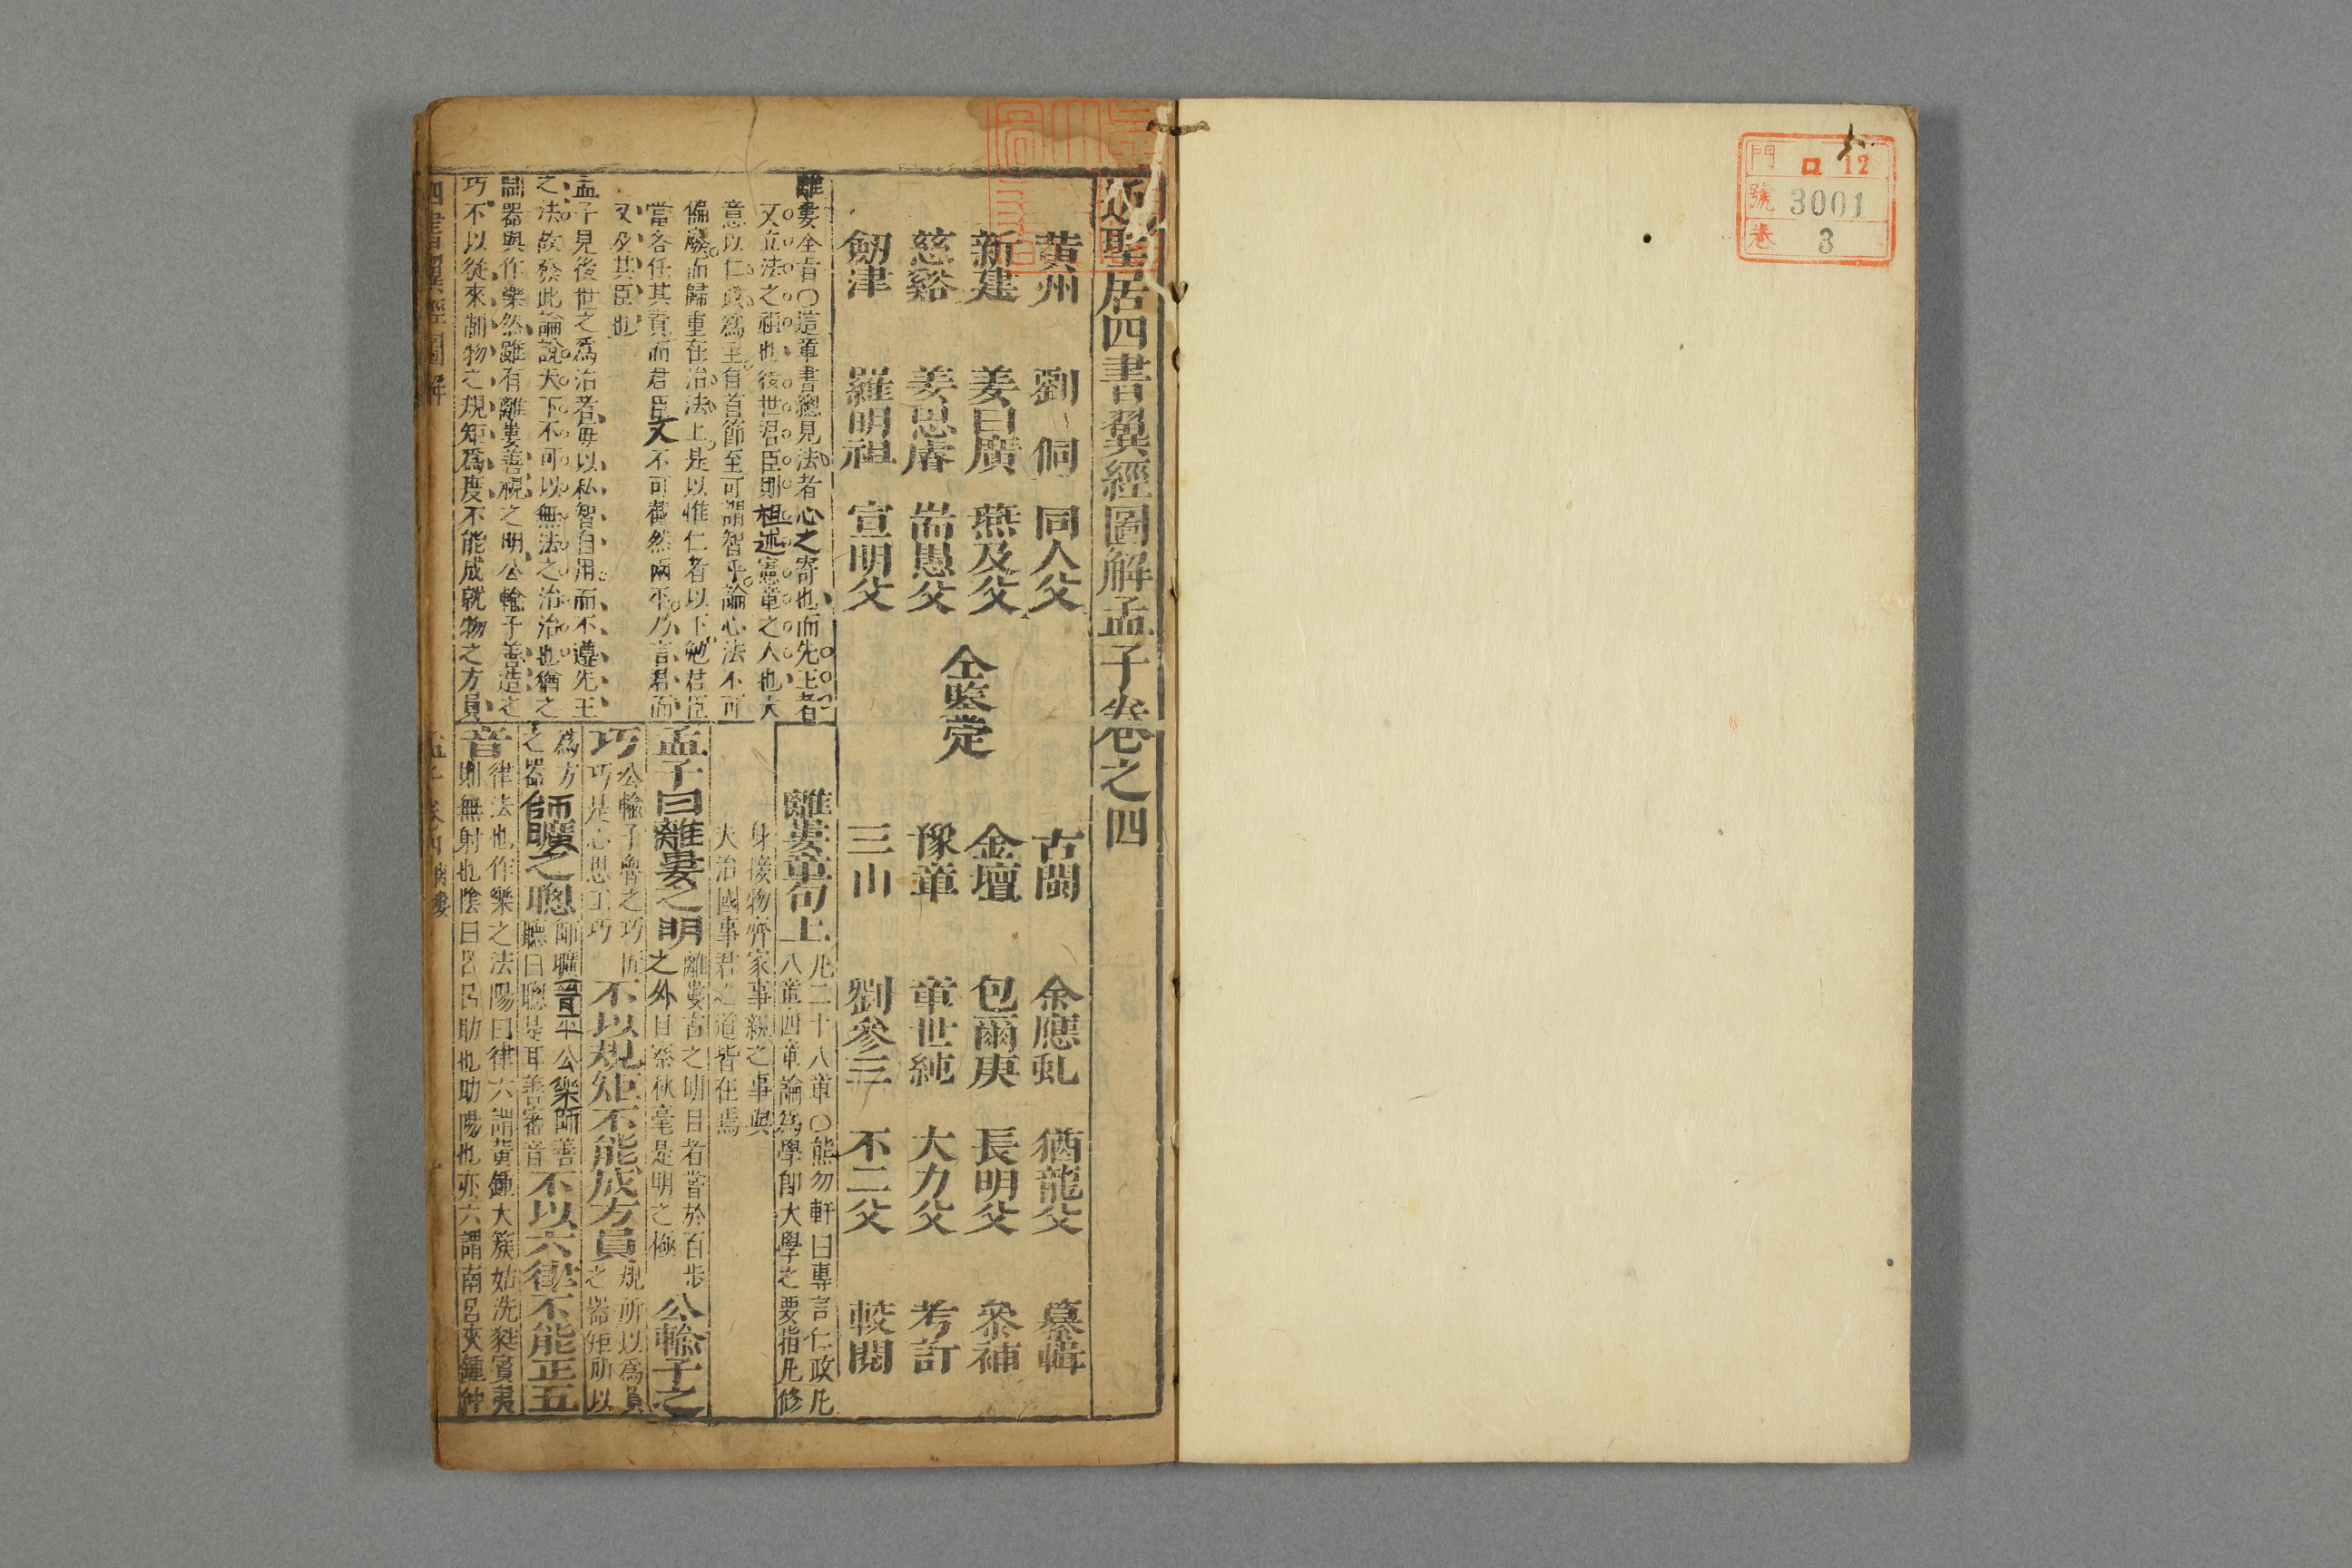 門 口 12
號 3001
卷 3
近聖居四書翼經圖解孟子卷之四
黃州 劉侗 同人父
新建 姜曰廣 燕及父
慈谿 姜思睿 耑愚父
劒津 羅明祖 宣明父
仝鑒定
古閩 余應虬 猶龍父 纂輯
金壇 包爾庚 長明父 叅補
豫章 章世純 大力父 考訂
三山 劉參三 不二父 較閱
離婁全旨〇這章書總見法者心之寄也而先王者
又立法之祖也後世君臣則祖述憲章之人也大
意以仁政爲主自首節至可謂智乎論心法不可
偏廢而歸重在治法上是以惟仁者以下勉君臣
當各任其責而君臣又不可截然兩平乃言君而
又及其臣也
孟子見後世之爲治者毋以私智自用而不遵先王
之法故發此論說天下不可以無法之治治也猶之
制器與作樂然雖有離婁善視之明公輸子善造之
巧不以從來制物之規矩爲度不能成就物之方員
離婁章句上
凡二十八章〇熊勿軒曰專言仁政凡
八章四章論爲學即大學之要指凡修
身接物齊家事親之事與
夫治國事君之道皆在焉
孟子曰離婁之明
離婁古之明目者嘗於百步
之外目察秋毫是明之極
公輸子之
巧
公輸子魯之巧匠
巧是心思工巧
不以規矩不能成方員
規所以爲員
之器矩所以
爲方
之器
師曠之聰
師曠晋平公樂師善
聽曰聰是耳善審音
不以六律不能正五
音
律法也作樂之法陽曰律六謂黃鍾大簇姑洗蕤賓夷
則無射也陰曰呂呂助也助陽也亦六謂南呂夾鍾
四書翼經圖解
孟子 卷四 離婁